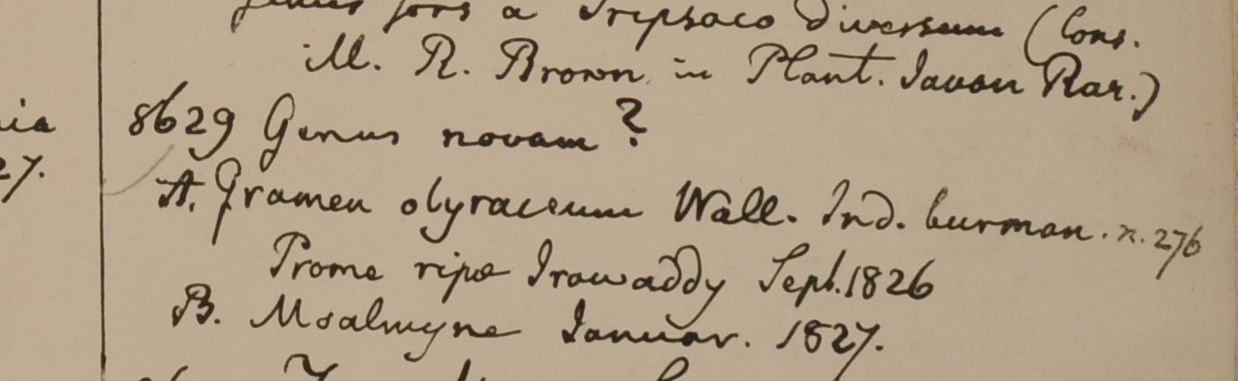 genus fors a Tripsaco diversum (Cons.
ill. R. Brown in Plant. Javan Rar.)
8629 Genus novum ?
A. Gramen olyraceum Wall. Ind. burman. n. 276
Prome ripæ Irawaddy Sept. 1826
B. Moalmyne Januar. 1827.
nia
27.